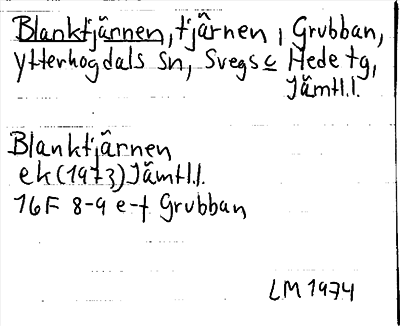 Blanktjärnen, tjärnen, Grubban,
Ytterhogdals sn, Svegs o Hede tg,
Jämtl.l.
Blanktjärnen
ek (1973) Jämtl.l.
16F 8-9 e-f Grubban
LM 1974